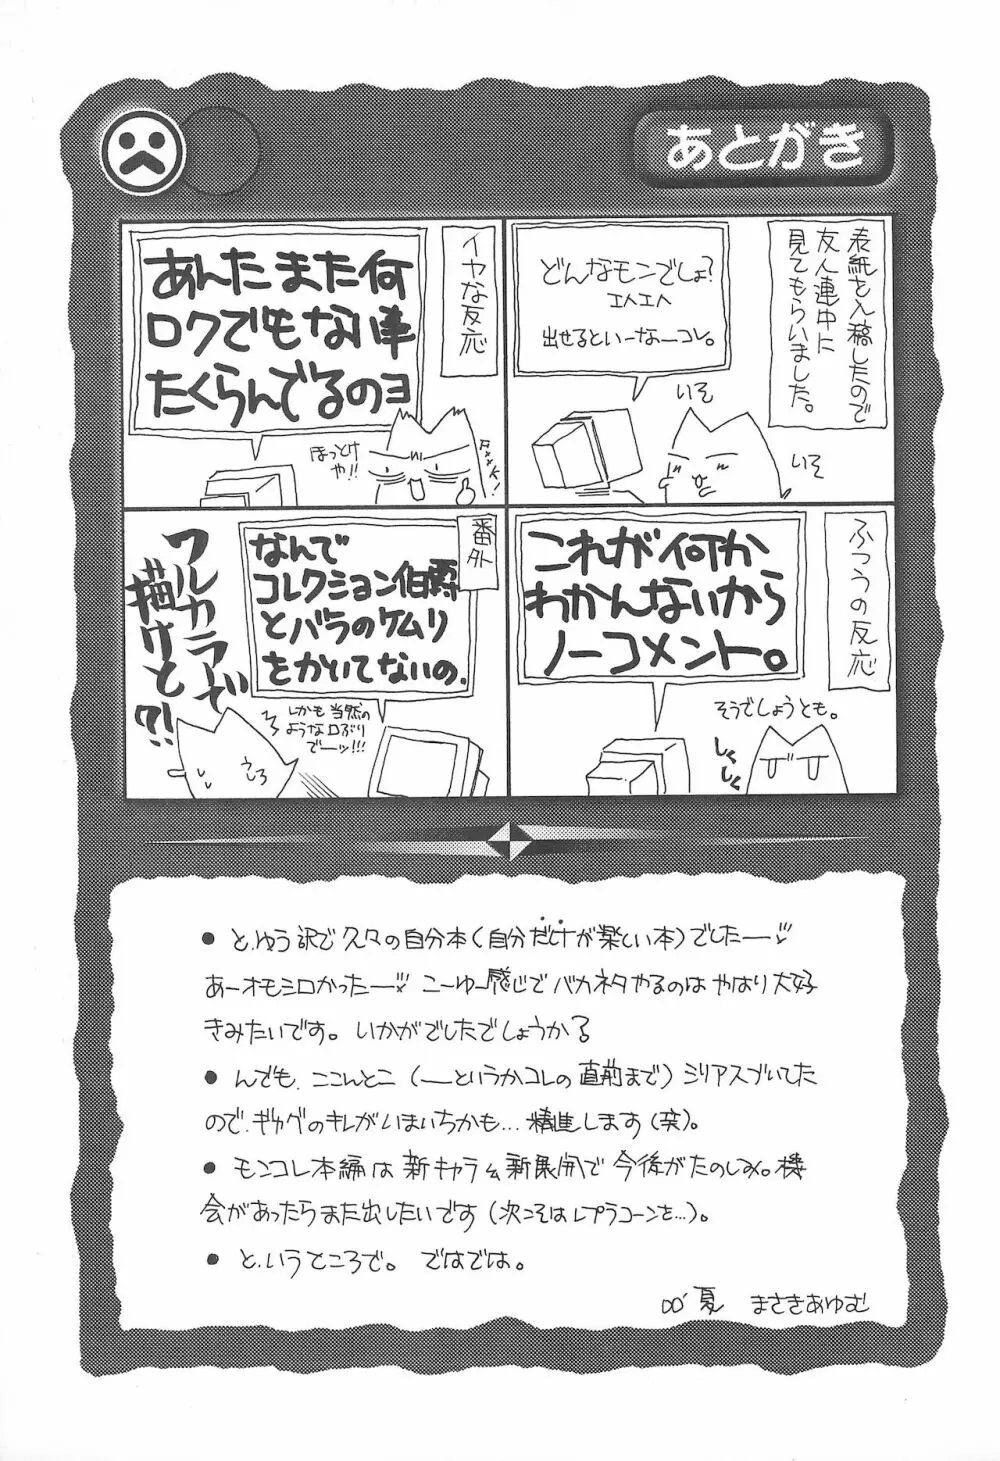 あとがき
表紙を入稿したので
友人連中に
見てもらいました。
どんなモンでしょ?
エヘエヘ
出せるといーなーコレ。
いそ
いそ
イヤな反応
あんたまた何
ロクでもない事
たくらんでるのヨ
ほっとけ
や!!
ふつうの反応
これが何か
わかんないから
ノーコメント。
そうでしょうとも。
しくしく
番外
なんで
コレクション伯爵
とバラのケムリ
をかいてないの.
しかも当然の
ような口ぶり
でーッ!!!
フルカラーで
描けと?!
と.ゆう訳で久々の自分本(自分だけが楽しい本)でしたー♡
あーオモシロかったー♡ こーゆー感じでバカネタやるのはやはり大好
きみたいです。いかがでしたでしょうか?
んでも、ここんとこ(ーというかコレの直前まで)シリアスづいてした
ので、ギャグのキレがいまいちかも…精進します(笑)。
モンコレ本編は新キャラ&新展開で今後がたのしみ。機
会があったらまた出したいです(次こそはレプラコーンを…)。
と.いうところで。ではでは。
00'夏 まさきあゆむ